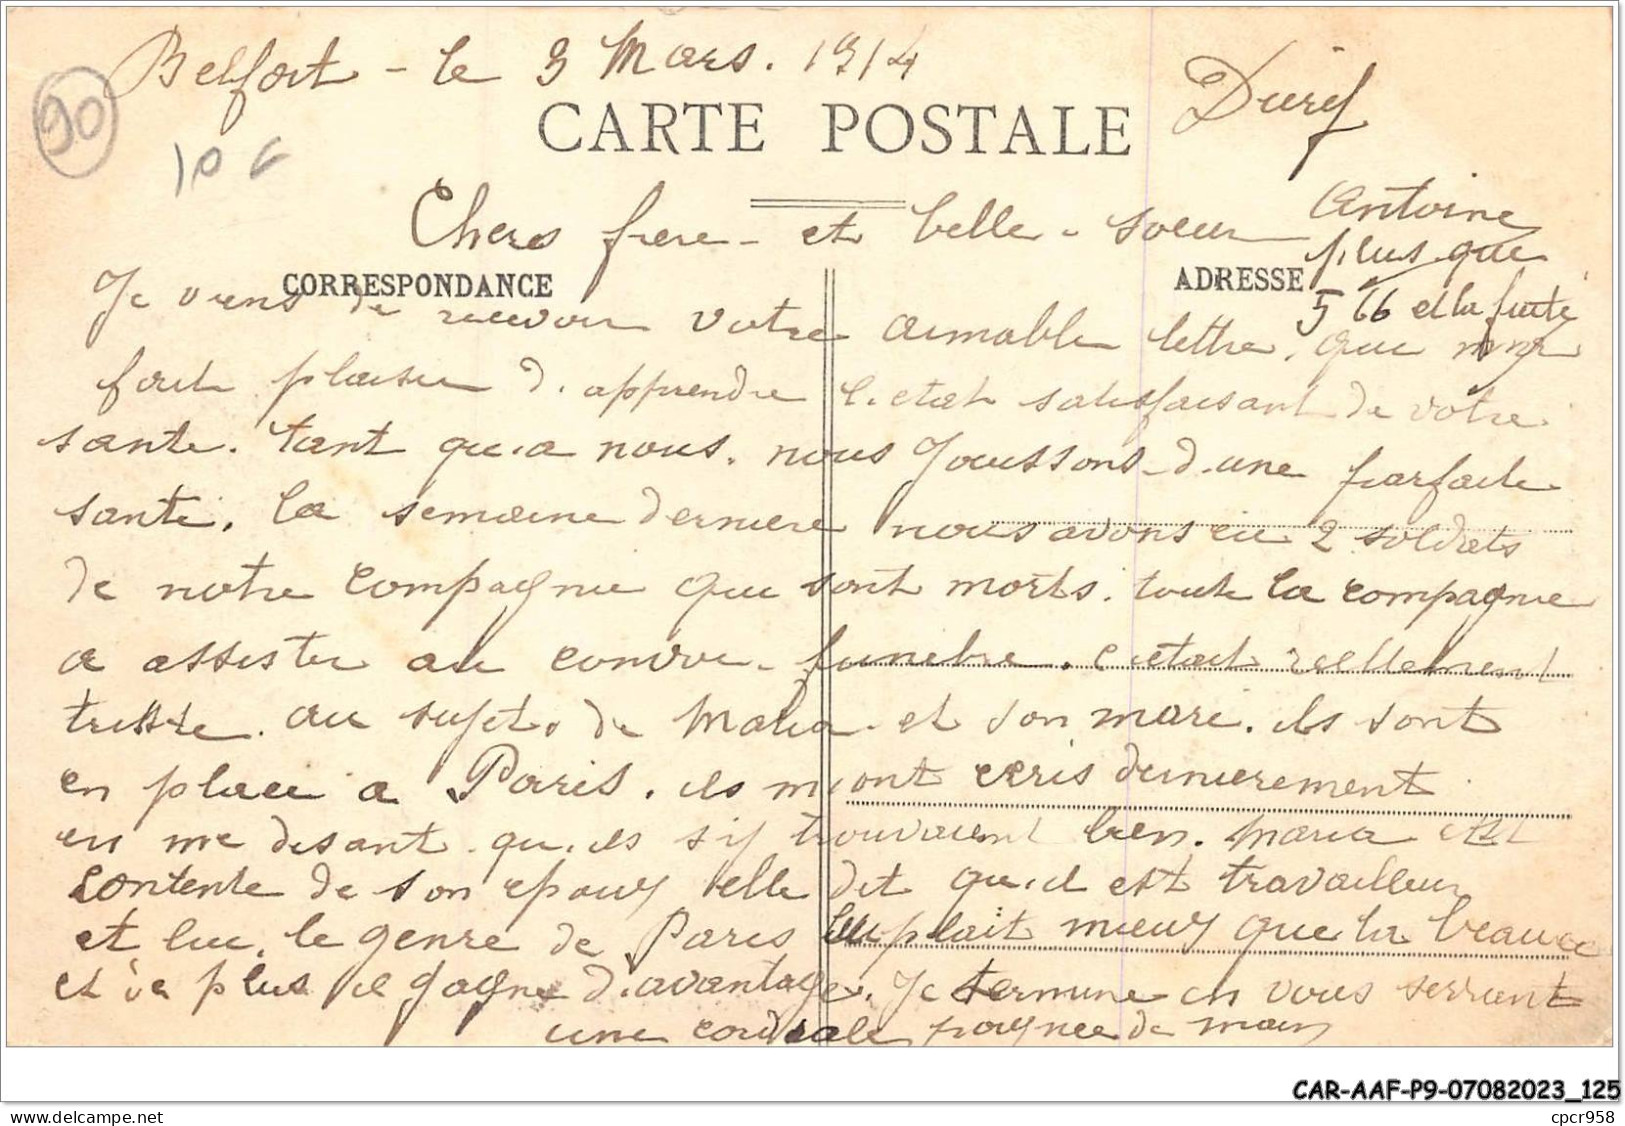 Belfort - le 3 Mars. 1914
90
10 €
CARTE POSTALE
Durif
Antoine
plus que
566 et la fuite
Chers frere - et belle - soeur
CORRESPONDANCE
ADRESSE
Je viens de recevoir votre aimable lettre. que m
fait plaisir d. apprendre l. etat satisfaisant de votre
sante. tant qu.a nous. nous Jouissons d.une parfaite
santé. la semaine derniere nous avons eu 2 soldats
de notre compagnie qui sont morts. toute la compagnie
a assister au convoi - funebre. c etait reellement
triste. au sujet. de Maria. et son mari. ils sont
en place a Paris. ils m ont ecris dernierement
en me disant qu.ils s'y trouvaient bien. Maria est
contente de son epoux elle dit qu.il est travailleur
et lui. le genre de Paris lui plait mieux que la beauce
et de plus il gagne d.avantage. Je termine en vous serrant
une cordiale poignee de main
CAR-AAF-P9-07082023_125
© delcampe.net
cpcr958